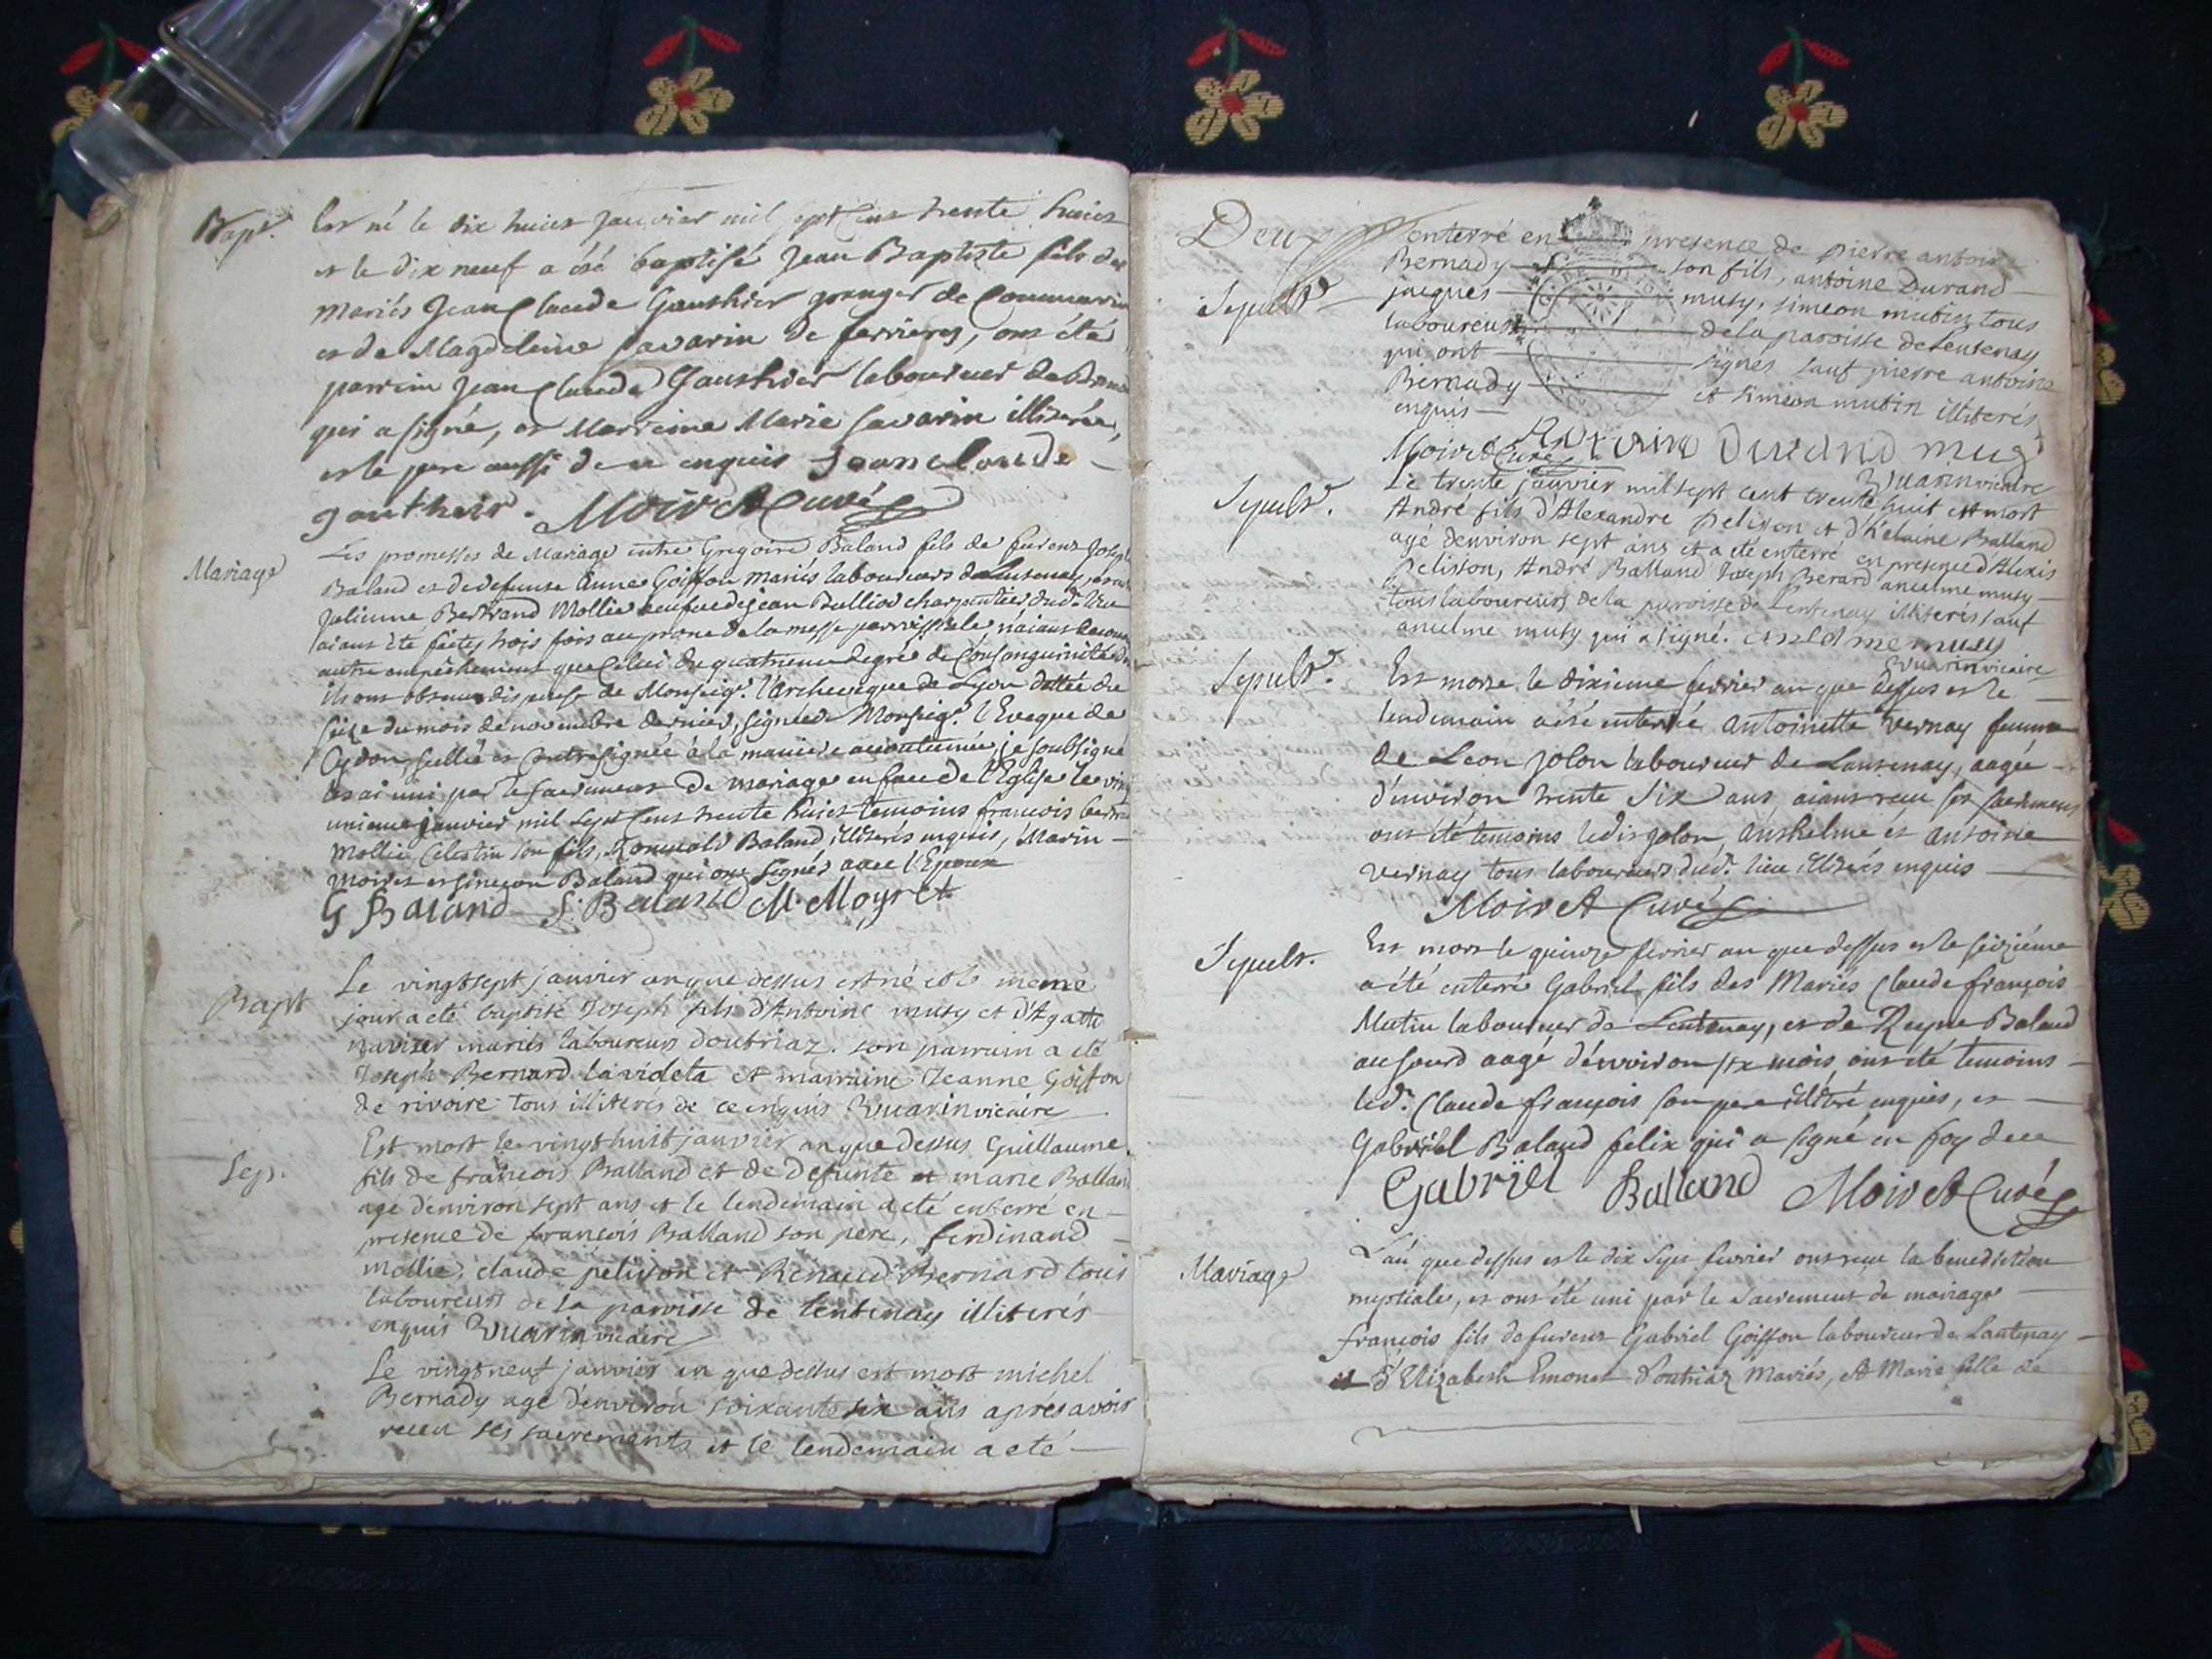 Bapt. Est né le dix huict janvier mil sept cens trente huict
et le dix neuf a été baptisé Jean Baptiste fils des
mariés Jean Claude Gauthier granger de
et de Magdeleine Savarin de ferrieres, ont été
parrein Jean Claude Gauthier laboureur de
qui a signé, et Marreine Marie Savarin illiterée,
et le pere aussi de ce enquis Jean claude
gautheir. Moiret Curé
Mariage Les promesses de Mariage entre Gregoire Baland fils de furent Joseph
Baland et de defunte Anne Goiffon mariés laboureurs de Lentenay, et
Julienne Bertrand Mollie veufue de jean Bulliod charpentier dud. lieu
aians été faites trois fois au prone de la messe parroissiale, n'aiant
autre empêchement que celui du quatrieme degré de Consanguinité
ils ont obtenu dispense de Monseigr. l'Archeveque de Lyon dattée du
seize du mois de novembre dernier, signée Monseigr. l'Eveque de
Cydon, scellée et contresignée à la maniere accoutumée, je soubsigné
les ai uni par le sacrement de mariage en face de l'Eglise le vint
unieme janvier mil sept cens trente huict temoins françois
Mollie, Celestin son fils, Romuald Baland, illiterés enquis, Marin
Moiret et simeon Baland qui ont signés avec l'Epoux
G Baland S: Baland M. Moyret
Bapt Le vingt sept janvier an que dessus est né et le meme
jour a eté baptisé Joseph fils d'Antoine musy et d'Agatte
mariés laboureurs d'outriaz. son parrain a eté
Joseph Bernard la videta et marraine Jeanne Goiffon
de rivoire tous illiterés de ce enquis Vuarin vicaire
Sep. Est mort le vingt huit janvier an que dessus Guillaume
fils de françois Balland et de defunte marie Balland
agé d'environ sept ans et le lendemain a eté enterré en
presence de françois Balland son pere, ferdinand
mollie, claude pelisson et Renaud Bernard tous
laboureurs de la paroisse de lentenay illiterés
enquis Vuarin vicaire
Le vingt neuf janvier an que dessus est mort michel
Bernady agé d'environ soixante six ans aprés avoir
receu ses sacrements et le lendemain a eté
Deux enterré en presence de pierre antoine
Bernady son fils, antoine Durand
Sepultr jacques musy, simeon mutin tous
laboureurs de la paroisse de Lentenay
qui ont signés sauf pierre antoine
Bernady et simeon mutin illiterés
enquis
Moiret Curé Antoine Durand mug
Vuarin vicaire
Sepultr. Le trente janvier mil sept cent trente huit est mort
André fils d'Alexandre Pelisson et d'helaine Balland
agé d'environ sept ans et a eté enterré en presence d'Alexis
Pelisson, André Balland Joseph Berard anselme musy
tous laboureurs de la paroisse de Lentenay illiterés sauf
anselme musy qui a signé. anselme musy
Vuarin vicaire
Sepultr. Est morte le dixieme fevrier an que dessus et le
lendemain a été enterrée Antoinette Vernay femme
de Leon jolon laboureur de Lantenay, aagée
d'environ trente six ans, aiant receu ses sacremens
ont été temoins ledit jolon, Anthelme et Antoine
Vernay tous laboureurs dud. lieu illiterés enquis
Moiret Curé
Sepultr. Est mort le quinze fevrier an que dessus et le seiziéme
a été enterré Gabriel fils des Mariés Claude françois
Mutin laboureur de Lentenay, et de Reyne Baland
au sourd aagé d'environ six mois, ont été temoins
led. Claude françois son pere illitré enquis, et
Gabriel Baland felix qui a signé en foy de ce
Gabriel Balland Moiret Curé
Mariage L'an que dessus et le dix sept fevrier ont receu la benediction
nuptiale, et ont été uni par le Sacrement de mariage
françois fils de furent Gabriel Goiffon laboureur de Lantenay
et d'Elizabeth Emonet d'outriaz Mariés, et Marie fille de